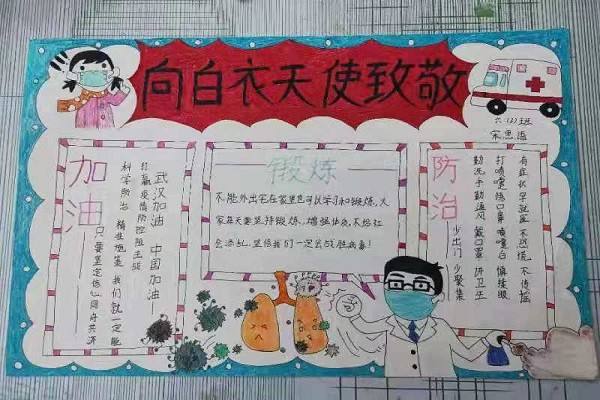 向白衣天使致敬
加油——只要坚定信心同舟共济
科学防治 精准施策 我们就一定能
打赢疫情防控阻击战
武汉加油 中国加油——
锻炼
不能外出宅在家里也可以学习和锻炼,大
家每天要坚持锻炼,增强体质,不给社
会添乱,坚信我们一定会战胜病毒!
防治——少出门——少聚集
勤洗手 勤通风 戴口罩 讲卫生
打喷嚏 捂口鼻 喷嚏后 慎揉眼
有症状 早就医 不恐慌 不传谣